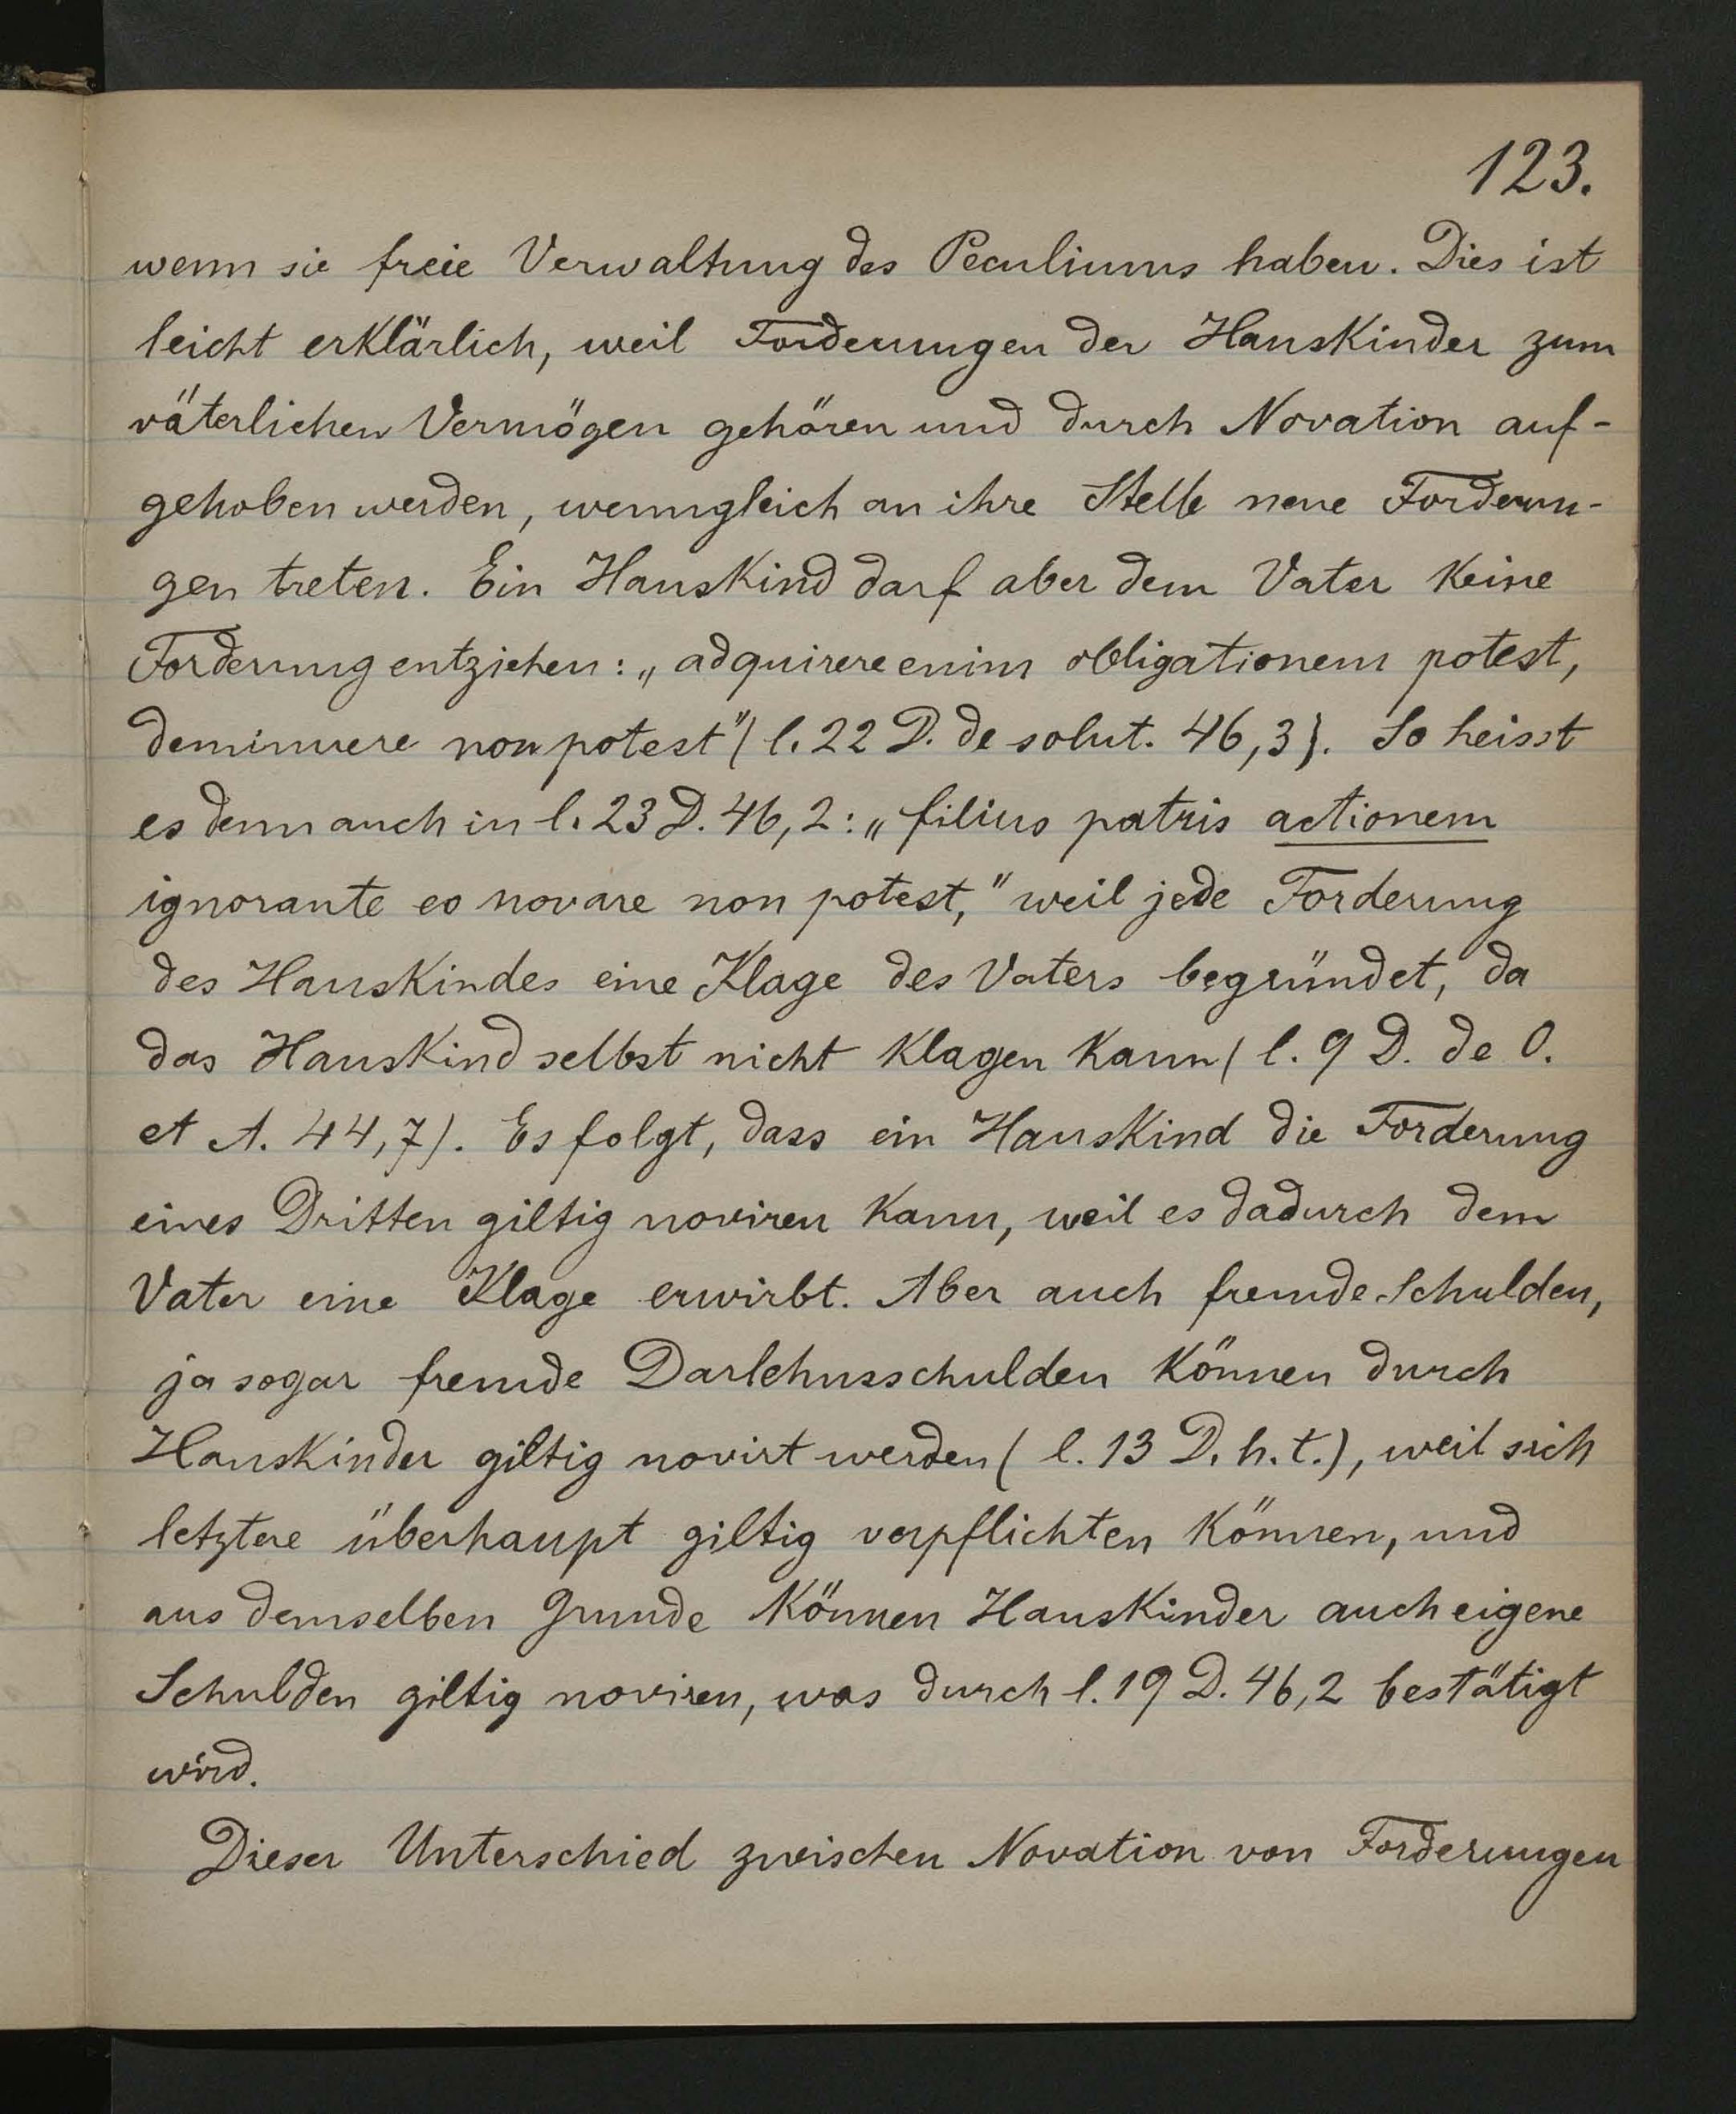 123.
wenn sie freie Verwaltung des Peculiums haben. Dies ist
leicht erklärlich, weil Forderungen der Hauskinder zum
väterlichen Vermögen gehören und durch Novation auf-
gehoben werden, wenngleich an ihre Stelle neue Forderun-
gen treten. Ein Hauskind darf aber dem Vater keine
Forderung entziehen: „adquirere enim obligationem potest,
deminuere non potest" (l. 22 D. de solut. 46,3). So heisst
es denn auch in l. 23 D. 46,2: „filius patris actionem
ignorante eo novare non potest," weil jede Forderung
des Hauskindes eine Klage des Vaters begründet, da
das Hauskind selbst nicht klagen kann (l. 9 D. de O.
et A. 44,7). Es folgt, dass ein Hauskind die Forderung
eines Dritten giltig noviren kann, weil es dadurch dem
Vater eine Klage erwirbt. Aber auch fremde Schulden,
ja sogar fremde Darlehnsschulden können durch
Hauskinder giltig novirt werden (l. 13 D. h. t.), weil sich
letztere überhaupt giltig verpflichten können, und
aus demselben Grunde können Hauskinder auch eigene
Schulden giltig noviren, was durch l. 19 D. 46,2 bestätigt
wird.
Dieser Unterschied zwischen Novation von Forderungen